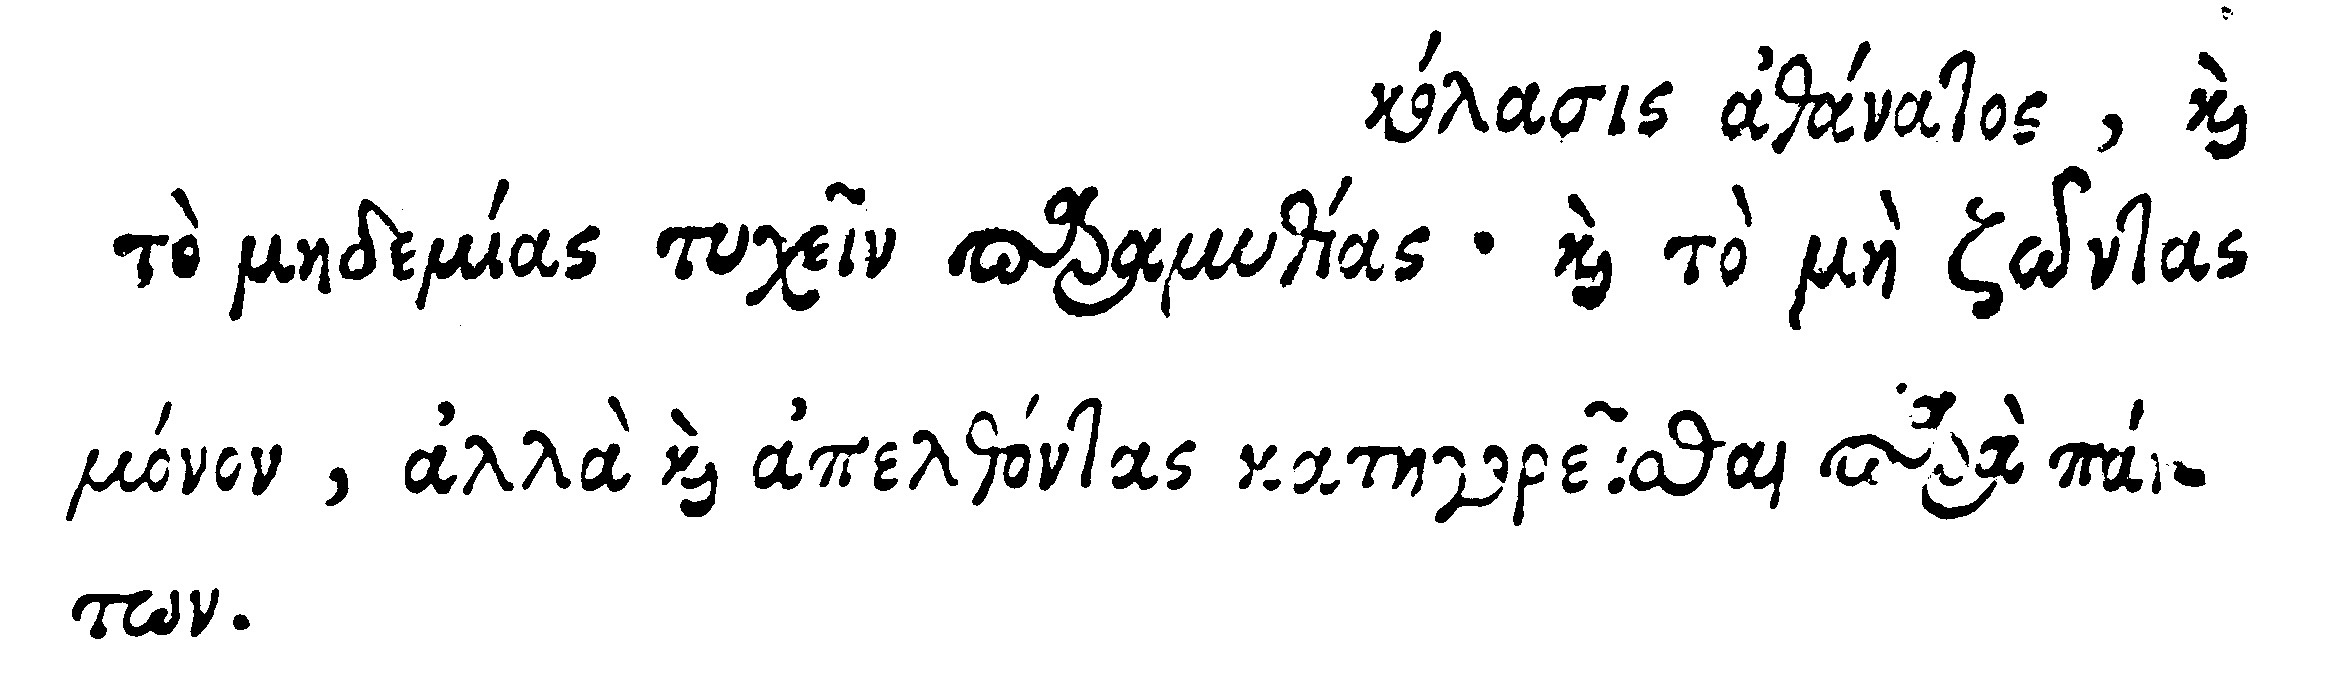 κόλασις ἀθάνατος, καὶ
τὸ μηδεμίας τυχεῖν παραμυθίας· καὶ τὸ μὴ ζῶντας
μόνον, ἀλλὰ καὶ ἀπελθόντας κατηγορεῖσθαι παρὰ πάν-
των.